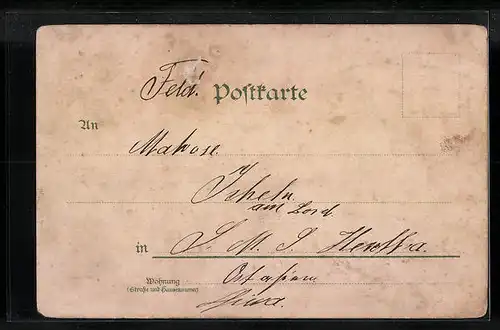 Feld! Postkarte
An
Matrose
am Bord
in S. M. S. Hertha
Ostasien
Wohnung
(Straße und Hausnummer)